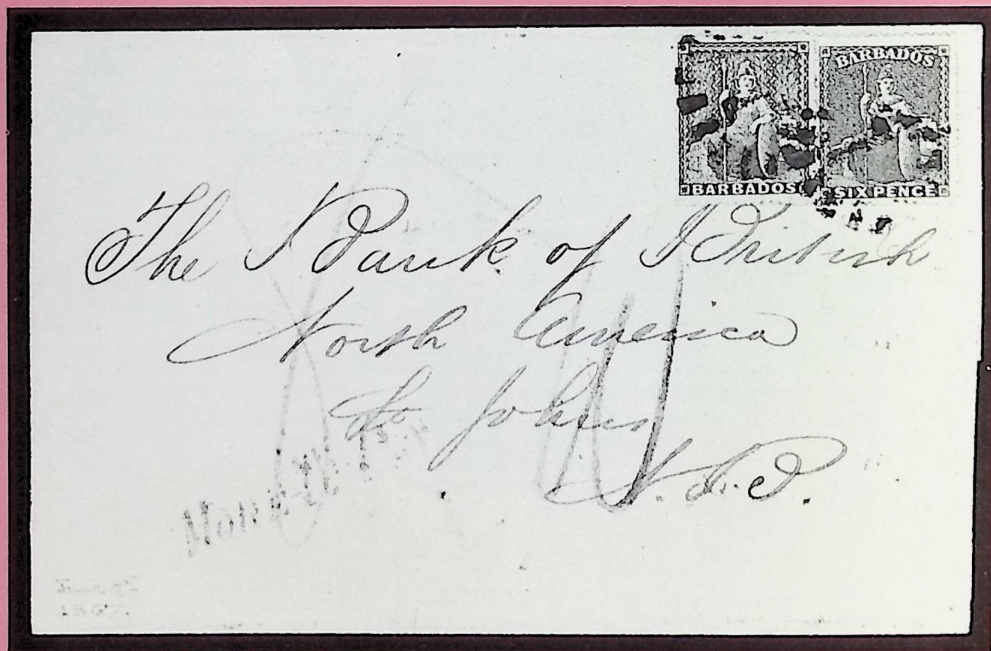 BARBADOS
BARBADOS
SIX PENCE
The Bank of British
North America
St Johns
4
1867.